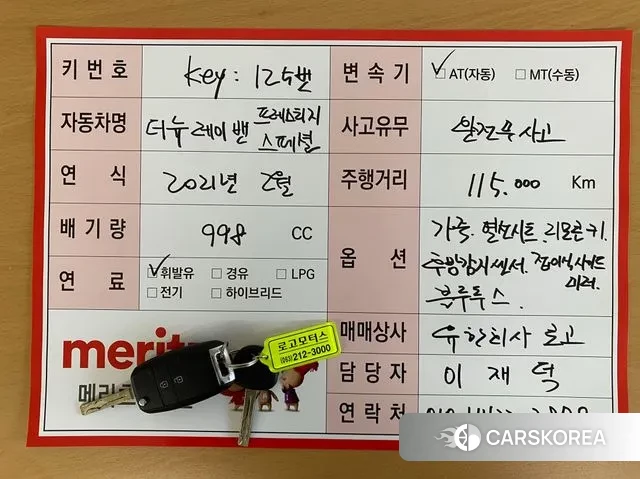 키번호 Key : 125번
변속기 ☑ AT(자동) □ MT(수동)
자동차명 더뉴 레이 밴 프레스티지
스페셜
사고유무 완전무사고
연식 2021년 2월
주행거리 115.000 Km
배기량 998 CC
옵션 가죽. 열선시트. 리모콘키.
후방감지센서. 접이식사이드
미러.
블루투스.
연료 ☑ 휘발유 □ 경유 □ LPG
□ 전기 □ 하이브리드
매매상사 유한회사 로고
담당자 이재덕
연락처
로고모터스
(063)212-3000
CARSKOREA